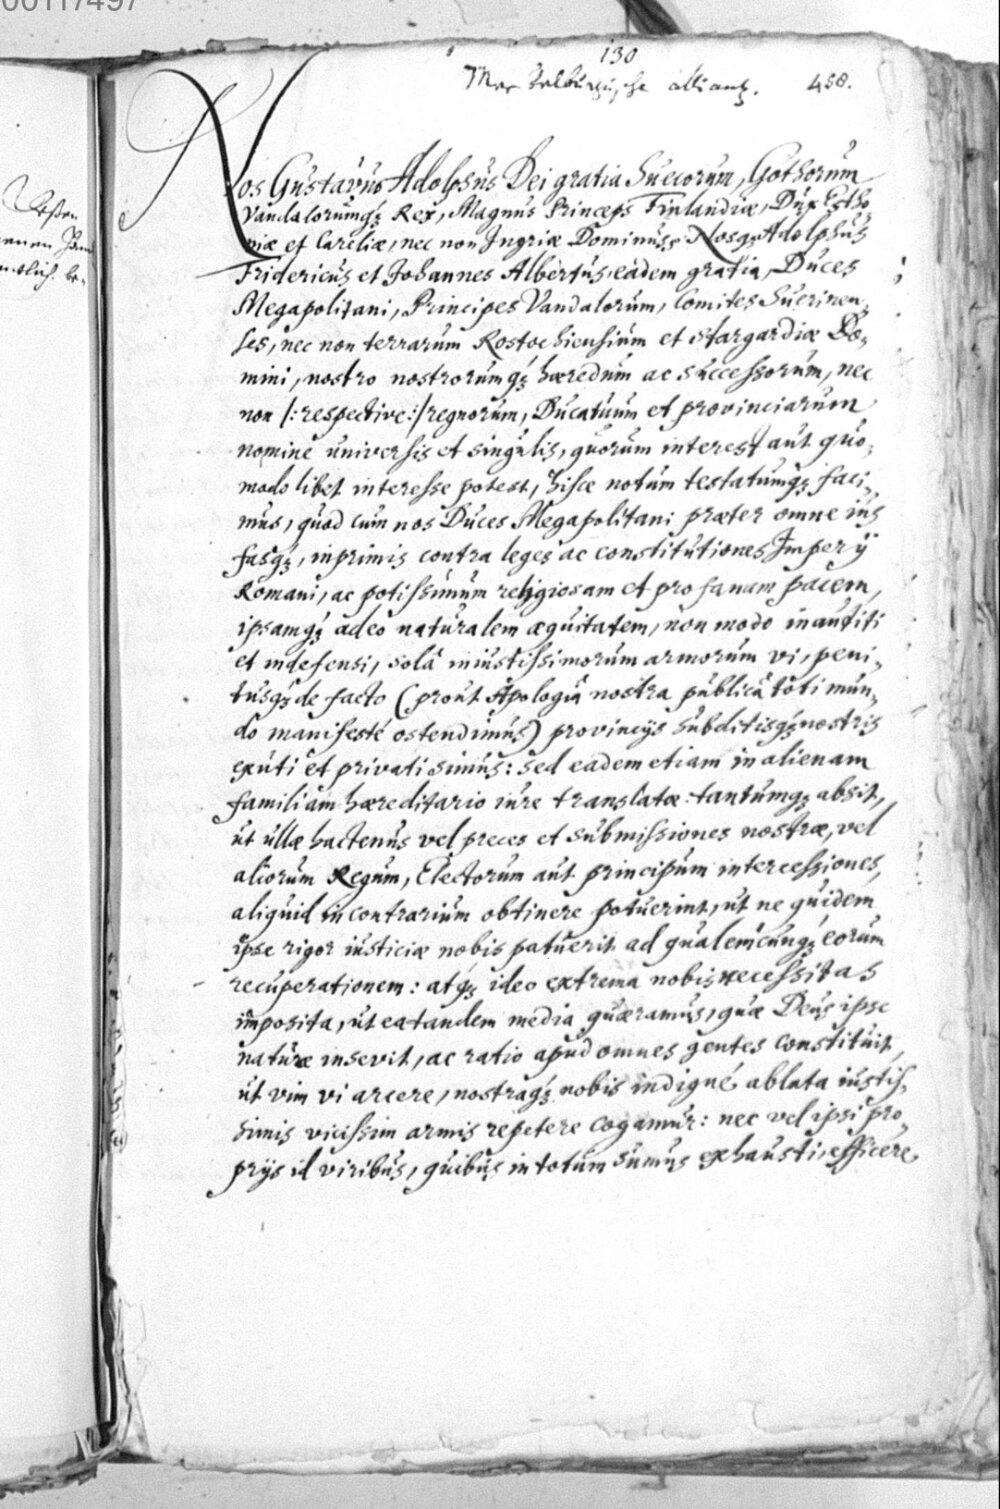 00117497
130
Meckelburgische alliantz. 458.
Nos Gustavus Adolphus Dei gratia Suecorum, Gothorum
Vandalorumq́ꝫ Rex, Magnus Princeps Finlandiæ, Dux Estho
niæ et Careliæ, nec non Ingriæ Dominus, Nosqꝫ Adolphus
Fridericus et Johannes Albertus, eâdem gratia, Duces
Megapolitani, Principes Vandalorum, Comites Suerinen,
ses, nec non terrarum Rostochiensium et Stargardiæ Do,
mini, nostro nostrorumq́ꝫ hæredum ac successorum, nec
non /: respective :/ regnorum, Ducatuum et provinciarum
nomine universis et singulis, quorum interest aut quo,
modolibet interesse potest, hisce notum testatumq́ꝫ faci,
mus, quod cum nos Duces Megapolitani præter omne ius
fasq́ꝫ, inprimis contra leges ac constitutiones Imperÿ
Romani, ac potissimum religiosam et profanam pacem,
ipsamq́ꝫ adeo naturalem æquitatem, non modo inauditi
et indefensi, solâ iniustissimorum armorum vi, peni,
tusq́ꝫ de facto (prout Apologiâ nostra publicâ toti mun,
do manifesté ostendimus) provincijs subditisq́ꝫ nostris
exuti et privati simus: sed eadem etiam in alienam
familiam hæreditario iure translatæ: tantumqꝫ absit,
ut ullæ hactenus vel preces et submissiones nostræ, vel
aliorum Regum, Electorum aut principum intercessiones,
aliquid in contrarium obtinere potuerint, ut ne quidem
ipse rigor iusticiæ nobis patuerit ad qualemcunq́ꝫ eorum
recuperationem: atq́ꝫ ideo extrema nobis necessitas
imposita, ut ea tandem media quæramus, quæ Deus ipse
naturæ insevit, ac ratio apud omnes gentes constituit,
ut vim vi arcere, nostraq́ꝫ nobis indigné ablata iustis,
simis vicissim armis repetere cogamur: nec vel ipsi pro,
prijs id viribus, quibus in totum sumus exhausti, efficere